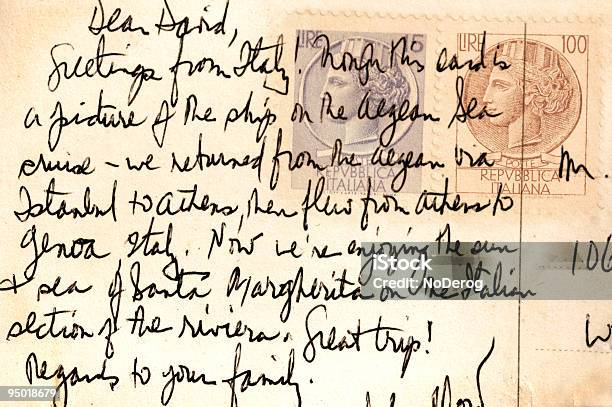 Dear David,
LIRE 15
LIRE 100
Greetings from Italy! Though this card is
a picture of the ship on the Aegean Sea
cruise - we returned from the Aegean via
REPVBBLICA
ITALIANA
REPVBBLICA
ITALIANA
Mr.
Istanbul to Athens, then flew from Athens to
Genoa Italy. Now we're enjoying the sun
106
+ sea of Santa Margherita on the Italian
iStock
Credit: NoDerog
section of the riviera. Great trip!
W
Regards to your family.
95018679